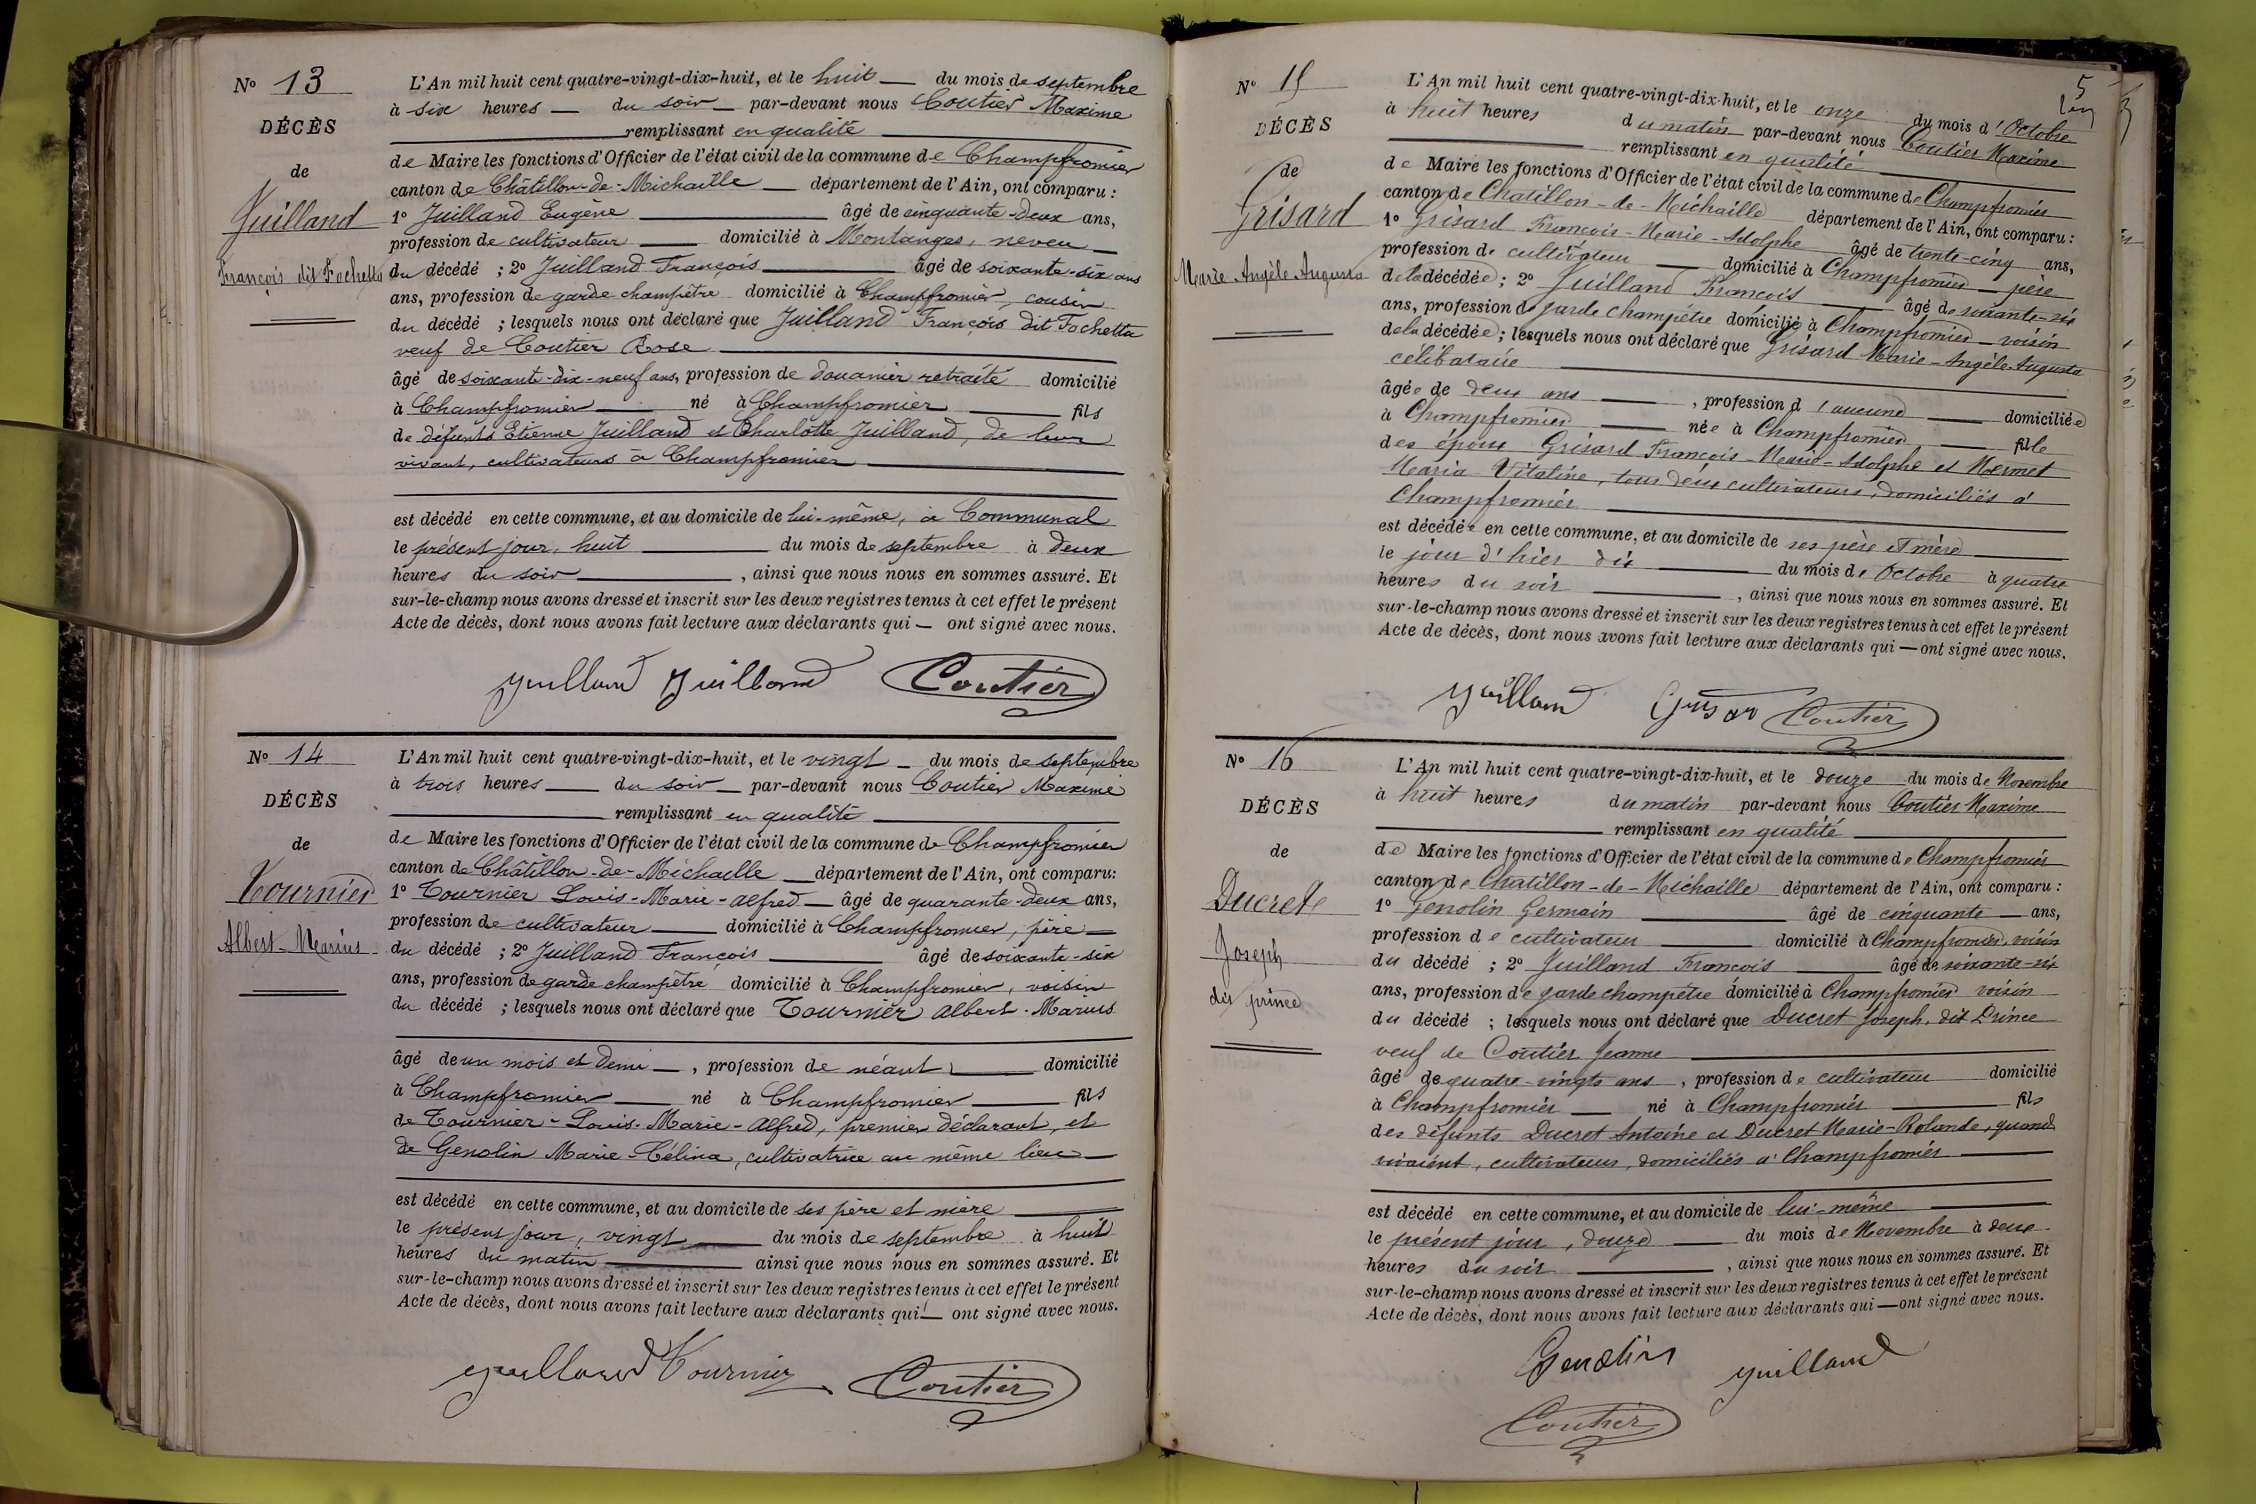 N° 13
DÉCÈS
de
Juilland
François dit Fochetta
L'An mil huit cent quatre-vingt-dix-huit, et le huit du mois de septembre
à six heures du soir par-devant nous Coutier Maxime
remplissant en qualité
de Maire les fonctions d'Officier de l'état civil de la commune de Champfromier
canton de Châtillon-de-Michaille département de l'Ain, ont comparu :
1° Juilland Eugène âgé de cinquante-deux ans,
profession de cultivateur domicilié à Montanges, neveu
du décédé ; 2° Juilland François âgé de soixante-six ans
ans, profession de garde champêtre domicilié à Champfromier, cousin
du décédé ; lesquels nous ont déclaré que Juilland François dit Fochetta
veuf de Coutier Rose
âgé de soixant-dix-neuf ans, profession de douanier retraité domicilié
à Champfromier né à Champfromier fils
de défunts Etienne Juilland et Charlotte Juilland, de leur
vivant, cultivateurs à Champfromier
est décédé en cette commune, et au domicile de lui-même, à Communal
le présent jour, huit du mois de septembre à deux
heures du soir, ainsi que nous nous en sommes assuré. Et
sur-le-champ nous avons dressé et inscrit sur les deux registres tenus à cet effet le présent
Acte de décès, dont nous avons fait lecture aux déclarants qui — ont signé avec nous.
Juilland Juilland Coutier
N° 14
DÉCÈS
de
Tournier
Albert-Marius
L'An mil huit cent quatre-vingt-dix-huit, et le vingt du mois de septembre
à trois heures du soir par-devant nous Coutier Maxime
remplissant en qualité
de Maire les fonctions d'Officier de l'état civil de la commune de Champfromier
canton de Châtillon-de-Michaille département de l'Ain, ont comparu:
1° Tournier Louis-Marie-Alfred âgé de quarante-deux ans,
profession de cultivateur domicilié à Champfromier, père
du décédé ; 2° Juilland François âgé de soixante-six
ans, profession de garde champêtre domicilié à Champfromier, voisin
du décédé ; lesquels nous ont déclaré que Tournier Albert-Marius
âgé de un mois et demi, profession de néant domicilié
à Champfromier né à Champfromier fils
de Tournier-Louis-Marie-Alfred, premier déclarant, et
de Genolin Marie-Célina, cultivatrice au même lieu
est décédé en cette commune, et au domicile de ses père et mère
le présent jour, vingt du mois de septembre à huit
heures du matin ainsi que nous nous en sommes assuré. Et
sur-le-champ nous avons dressé et inscrit sur les deux registres tenus à cet effet le présent
Acte de décès, dont nous avons fait lecture aux déclarants qui — ont signé avec nous.
Juilland Tournier Coutier
5
N° 15
DÉCÈS
de
Grisard
Marie Angèle Augusta
L'An mil huit cent quatre-vingt-dix-huit, et le onze du mois d'Octobre
à huit heures du matin par-devant nous Coutier Maxime
remplissant en qualité
de Maire les fonctions d'Officier de l'état civil de la commune de Champfromier
canton de Chatillon-de-Michaille département de l'Ain, ont comparu :
1° Grisard François-Marie-Adolphe âgé de trente-cinq ans,
profession de cultivateur domicilié à Champfromier père
de la décédée ; 2° Juilland François âgé de soixante-six
ans, profession de garde champêtre domicilié à Champfromier voisin
de la décédée ; lesquels nous ont déclaré que Grisard Marie-Angèle-Augusta
célibataire
âgée de deux ans, profession d'aucune domiciliée
à Champfromier née à Champfromier, fille
des époux Grisard François-Marie-Adolphe et Mermet
Maria Vitaline, tous deux cultivateurs, domiciliés à
Champfromier
est décédée en cette commune, et au domicile de ses père et mère
le jour d'hier dix du mois de Octobre à quatre
heures du soir, ainsi que nous nous en sommes assuré. Et
sur-le-champ nous avons dressé et inscrit sur les deux registres tenus à cet effet le présent
Acte de décès, dont nous avons fait lecture aux déclarants qui — ont signé avec nous.
Juilland Grisard Coutier
N° 16
DÉCÈS
de
Ducret
Joseph
dit prince
L'An mil huit cent quatre-vingt-dix-huit, et le douze du mois de Novembre
à huit heures du matin par-devant nous Coutier Maxime
remplissant en qualité
de Maire les fonctions d'Officier de l'état civil de la commune de Champfromier
canton de Chatillon-de-Michaille département de l'Ain, ont comparu :
1° Genolin Germain âgé de cinquante ans,
profession de cultivateur domicilié à Champfromier, voisin
du décédé ; 2° Juilland François âgé de soixante-six
ans, profession de garde champêtre domicilié à Champfromier voisin
du décédé ; lesquels nous ont déclaré que Ducret Joseph, dit Prince
veuf de Coutier Jeanne
âgé de quatre-vingts ans, profession de cultivateur domicilié
à Champfromier né à Champfromier fils
des défunts Ducret Antoine et Ducret Marie-Rolande, quand
vivaient, cultivateurs, domiciliés à Champfromier
est décédé en cette commune, et au domicile de lui-même
le présent jour, douze du mois de Novembre à deux
heures du soir, ainsi que nous nous en sommes assuré. Et
sur-le-champ nous avons dressé et inscrit sur les deux registres tenus à cet effet le présent
Acte de décès, dont nous avons fait lecture aux déclarants qui — ont signé avec nous.
Genolin Juilland
Coutier